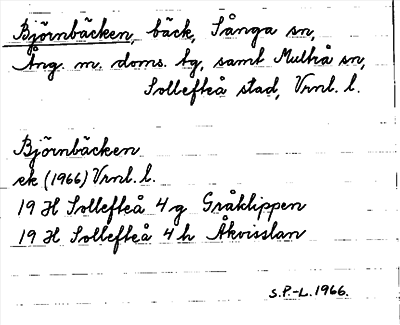 Björnbäcken, bäck, Sånga sn,
Ång. m. doms. tg, samt Multrå sn,
Sollefteå stad, Vrnl. l.
Björnbäcken
ek (1966) Vrnl. l.
19 H Sollefteå 4 g Gråklippen
19 H Sollefteå 4 h Åkvisslan
S.P.-L. 1966.